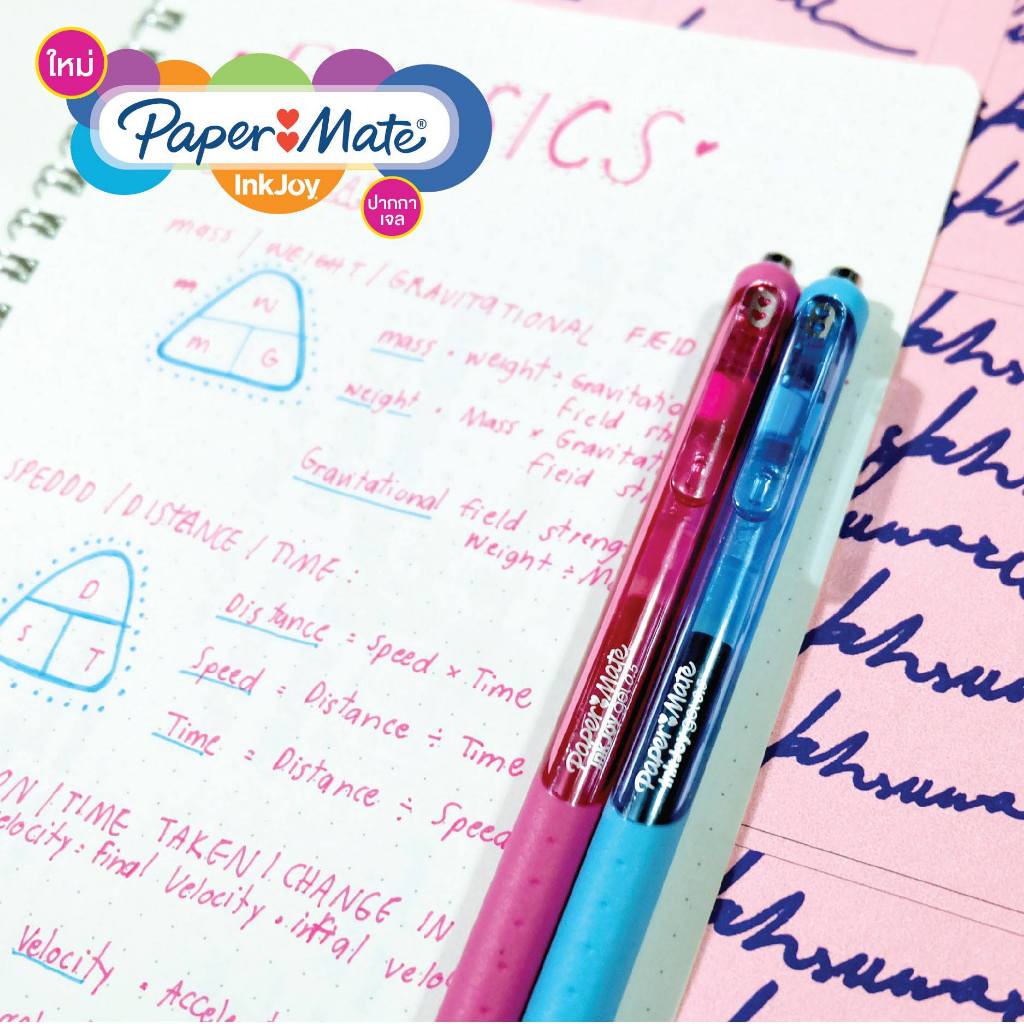 ใหม่
Paper Mate®
InkJoy
ปากกา
เจล
mass / WEIGHT / GRAVITATIONAL FIEID
m
W
m G
mass · weight ÷ Gravitatio
field str
weight · Mass × Gravitat
fieid st
Gravitational field streng
weight ÷ M
SPEDDD / DISTANCE / TIME :
D
S T
Distance = speed × Time
Speed = Distance ÷ Time
Time = Distance ÷ Speed
ON / TIME TAKEN / CHANGE IN
elocity : Final Velocity · inital velo
Velocity · Accele
Paper Mate
InkJoy gel 0.5
Paper Mate
InkJoy gel 0.5